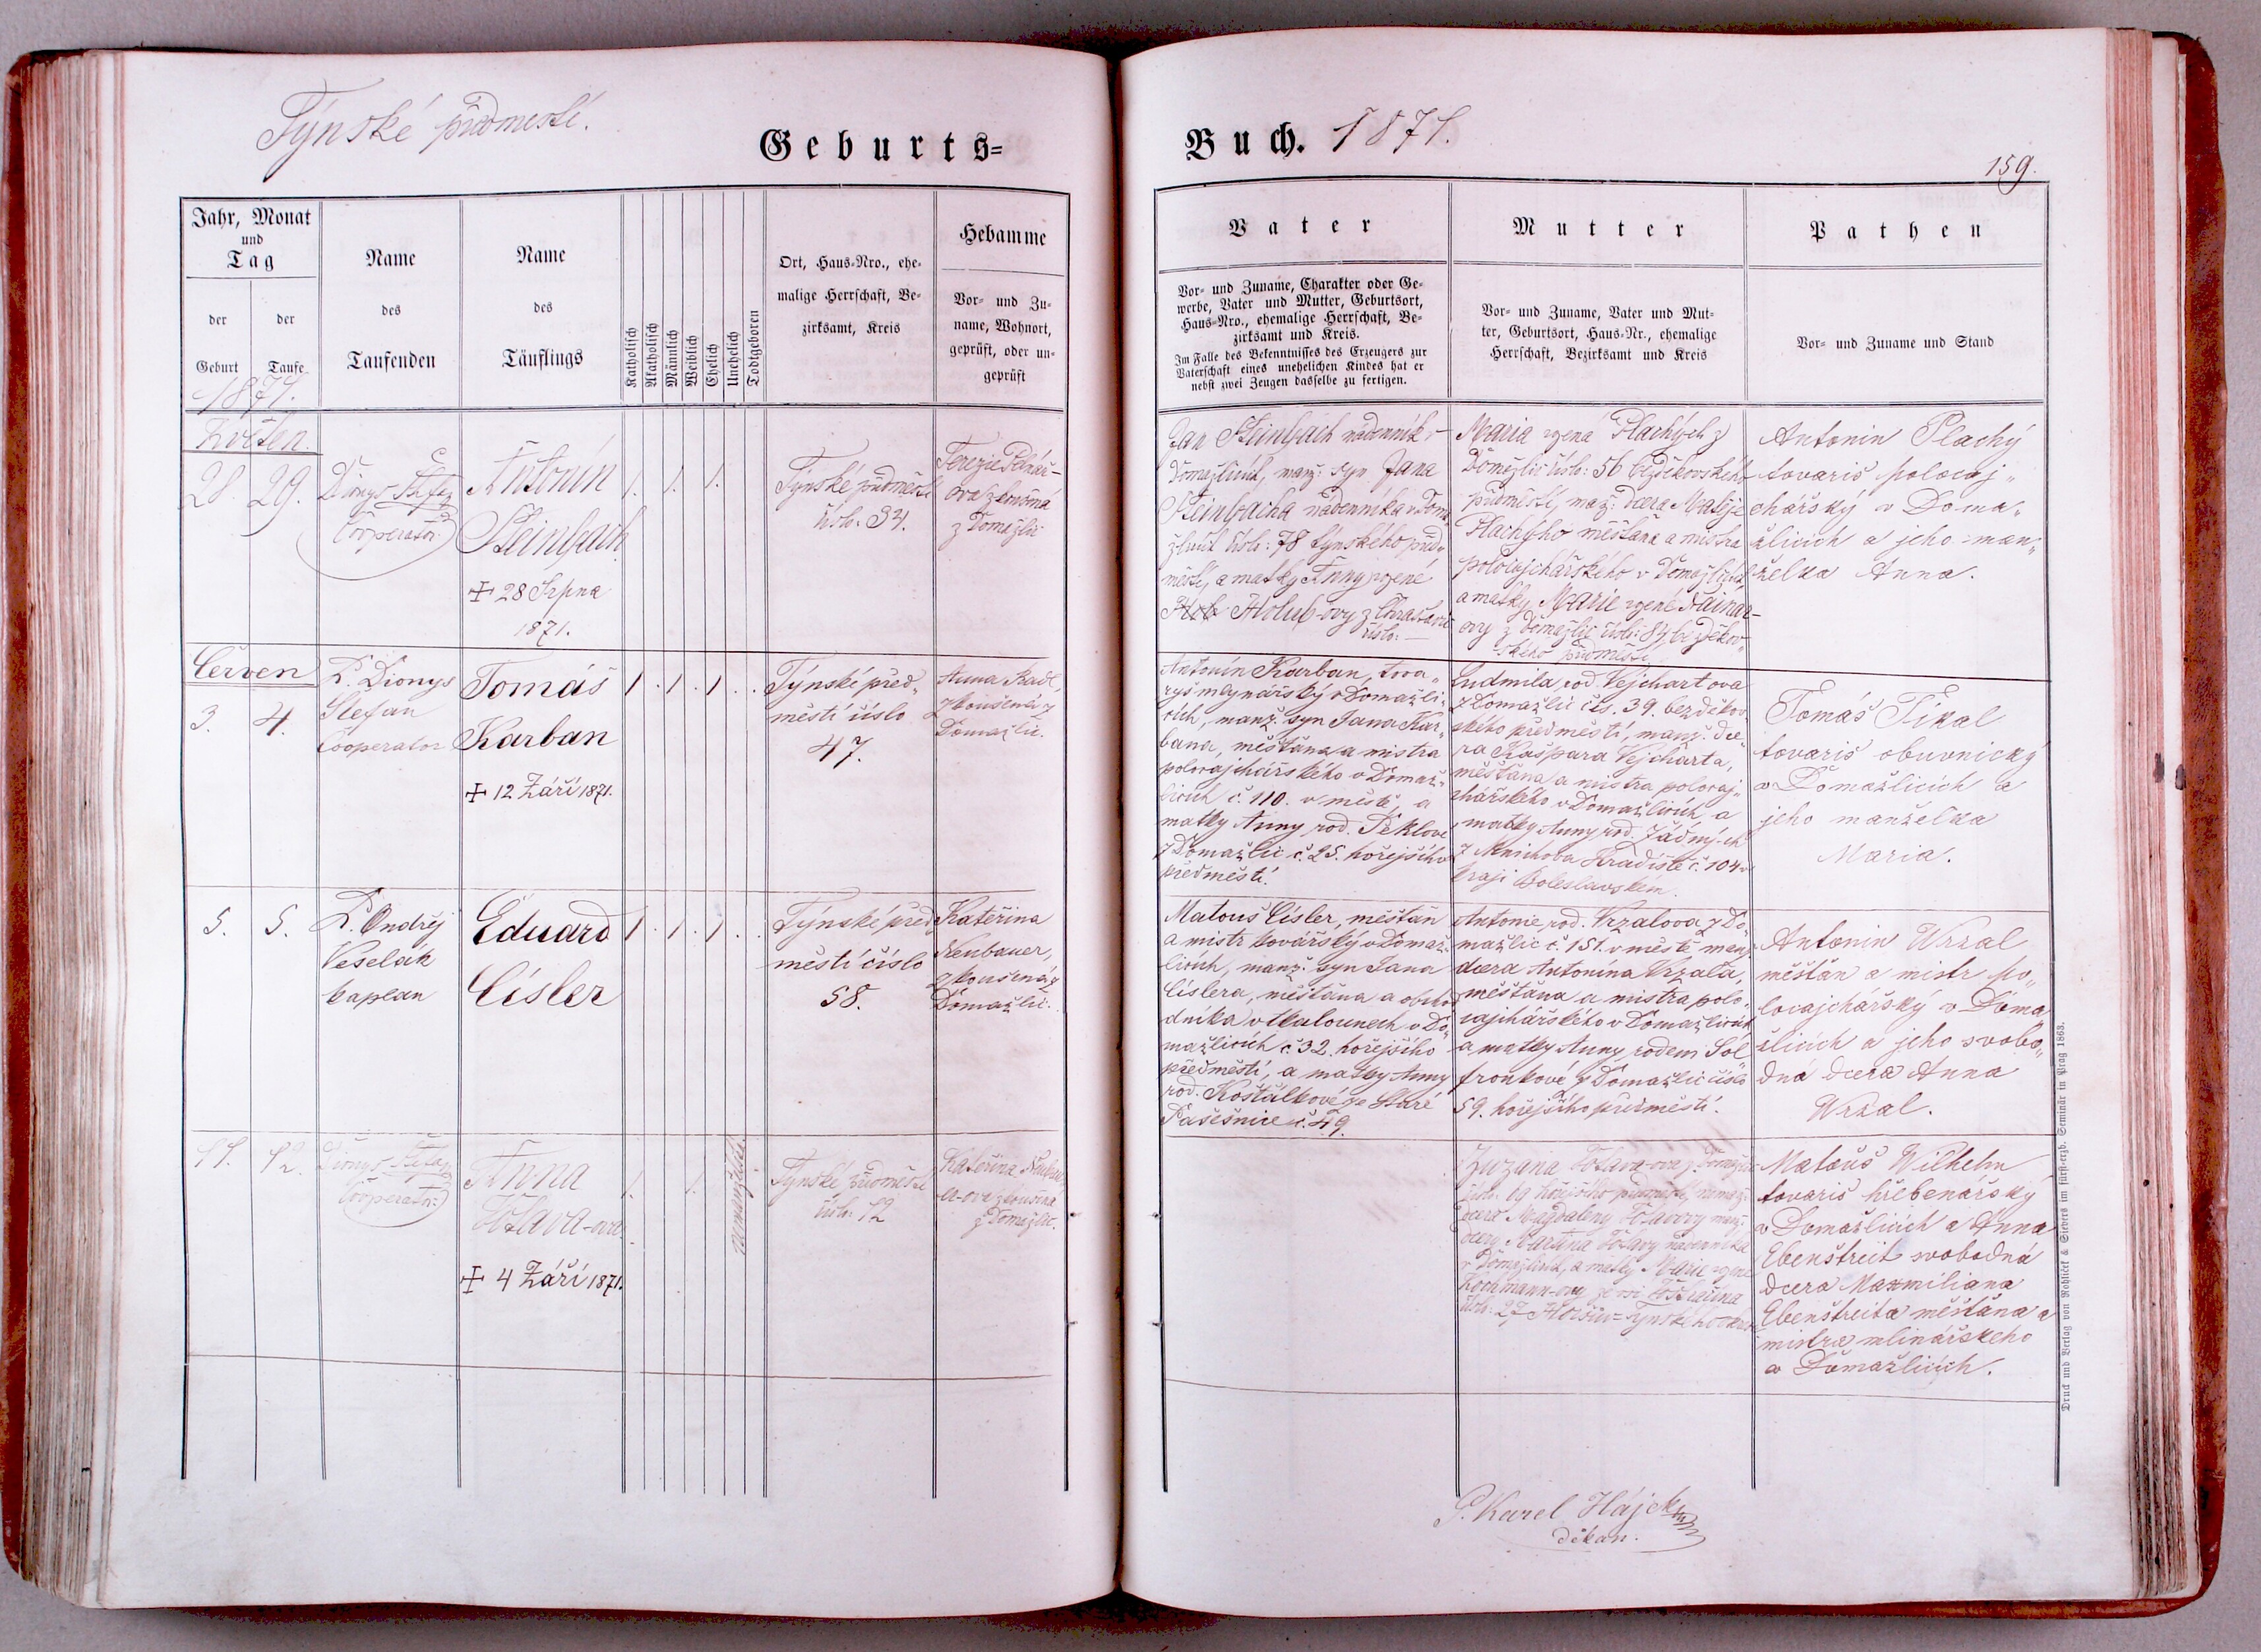 Týnské předměstí.
Geburts=
Buch. 1871.
159.
Jahr, Monat
und
Tag
der
Geburt
der
Taufe
Name
des
Taufenden
Name
des
Täuflings
Katholisch
Akatholisch
Männlich
Weiblich
Ehelich
Unehelich
Todtgeboren
Ort, Haus-Nro., ehe-
malige Herrschaft, Be-
zirksamt, Kreis
Hebamme
Vor- und Zu-
name, Wohnort,
geprüft, oder un-
geprüft
Vater
Vor- und Zuname, Charakter oder Ge-
werbe, Vater und Mutter, Geburtsort,
Haus-Nro., ehemalige Herrschaft, Be-
zirksamt und Kreis.
Im Falle des Bekenntnisses des Erzeugers zur
Vaterschaft eines unehelichen Kindes hat er
nebst zwei Zeugen dasselbe zu fertigen.
Mutter
Vor- und Zuname, Vater und Mut-
ter, Geburtsort, Haus-Nr., ehemalige
Herrschaft, Bezirksamt und Kreis
Pathen
Vor- und Zuname und Stand
1871.
Květen.
28. 29.
Dionys Štefan
Cooperator
Antonín
Steinbach
+ 28 Srpna
1871.
1. 1. 1.
Týnské předměstí
číslo. 34.
Terezie
ova zkoušená
z Domažlic
Jan Steinbach nádenník v
Domažlicích, manž: syn Jana
Steinbacha nádenníka v Doma
žlicích číslo: 78 týnského před„
městí, a matky Anny rozené
Holub-ovy z
číslo: —
Maria rozená Plachých z
Domažlic číslo: 56 bezděkovského
předměstí, manž: dcera Matěje
Plachýho měštana a mistra
polocajchářského v Domažlicích
a matky Marie rozené
ovy z Domažlic číslo: 84 bezděkov„
ského předměstí
Antonin Plachý
tovariš polocaj„
chářský v Doma„
žlicích a jeho man„
želka Anna.
Červen
3. 4.
P. Dionys
Štefan
Cooperator
Tomáš
Karban
+ 12 Září 1871.
1. 1. 1. .
Týnské před„
městí číslo
47.
Anna Kadl,
zkoušená z
Domažlic.
Antonín Karban, tova„
ryš mlynářský v Domažli„
cích, manž. syn Jana Kar„
bana, měštana a mistra
polocajchářského v Domaž„
licích č. 110. v městě, a
matky Anny rod. Peklové
z Domažlic č. 25. hořejšího
předměstí.
Ludmila, rod. Vejchartova
z Domažlic čís. 39. bezděkov
ského předměstí, manž. dce„
ra Kašpara Vejcharta,
měštana a mistra polocaj„
chářského v Domažlicích, a
matky Anny rod. Žádných
z Mnichova Hradiště č. 104 v
kraji Boleslavském.
Tomáš Tikal
tovariš obuvnický
v Domažlicích a
jeho manželka
Maria.
5. 5.
P. Ondřej
Veselák
kaplan
Eduard
Císler
1. 1. 1. .
Týnské před
městí číslo
58.
Kateřina
Neubauer,
zkoušená z
Domažlic.
Matouš Císler, měštan
a mistr kovářský v Domaž„
licích, manž. syn Jana
Císlera, měštana a obcho
dníka v tkalounech v Do„
mažlicích č. 32. hořejšího
předměstí, a matky Anny
rod. Košťálkové ze Staré
Pašešnice č. 49.
Antonie, rod. Vrzalova z Do„
mažlic č. 151. v městě manž
dcera Antonína Vrzala,
měštana a mistra polo„
cajchářského v Domažlicích
a matky Anny, rodem Sol
fronkové z Domažlic číslo
59. hořejšího předměstí.
Antonin Wrzal
měštan a mistr po„
locajchářský v Doma
žlicích a jeho svobo„
dná dcera Anna
Wrzal.
11. 12.
Dionys Štefan
Cooperator
Anna
Votava-ova.
+ 4 Září 1871.
1. 1.
nemanželské.
Týnské předměstí
číslo: 12
Kateřina Neubau
er-ova zkoušená
z Domažlic.
Zuzana Votava-ova z Domažlic
číslo: 19 hořejšího předměstí, nemanž:
dcera Magdaleny Votavovy manž:
dcery Martina Votavy nádenníka
v Domažlicích, a matky Marie rozené
Kochmann-ovy ze vsi
číslo: 27 Horšov=Týnského okresu
Matouš Wilhelm
tovariš hřebenářský
v Domažlicích a Anna
Ebenstreit svobodná
dcera Maxmiliana
Ebenstreita měštana a
mistra mlinářskeho
v Domažlicích.
P. Karel Hájek
děkan.
Druck und Verlag von Rohliček & Sievers im fürst-erzb. Seminär in Prag 1863.